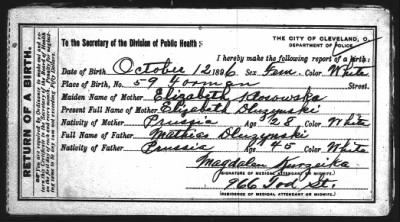 RETURN OF A BIRTH.
THE CITY OF CLEVELAND, O.
DEPARTMENT OF POLICE.
To the Secretary of the Division of Public Health:
I hereby make the following report of a birth:
Date of Birth October 12 1896 Sex Fem. Color White
Place of Birth, No. 59 Street.
Maiden Name of Mother Elizabeth
Present Full Name of Mother Elizabeth Dluzynski
Nativity of Mother Prussia Age 28 Color White
Full Name of Father Mathias Dluzynski
Nativity of Father Prussia Age 45 Color White
Magdalan
(SIGNATURE OF MEDICAL ATTENDANT OR MIDWIFE.)
966 Tod St.
(RESIDENCE OF MEDICAL ATTENDANT OR MIDWIFE.)